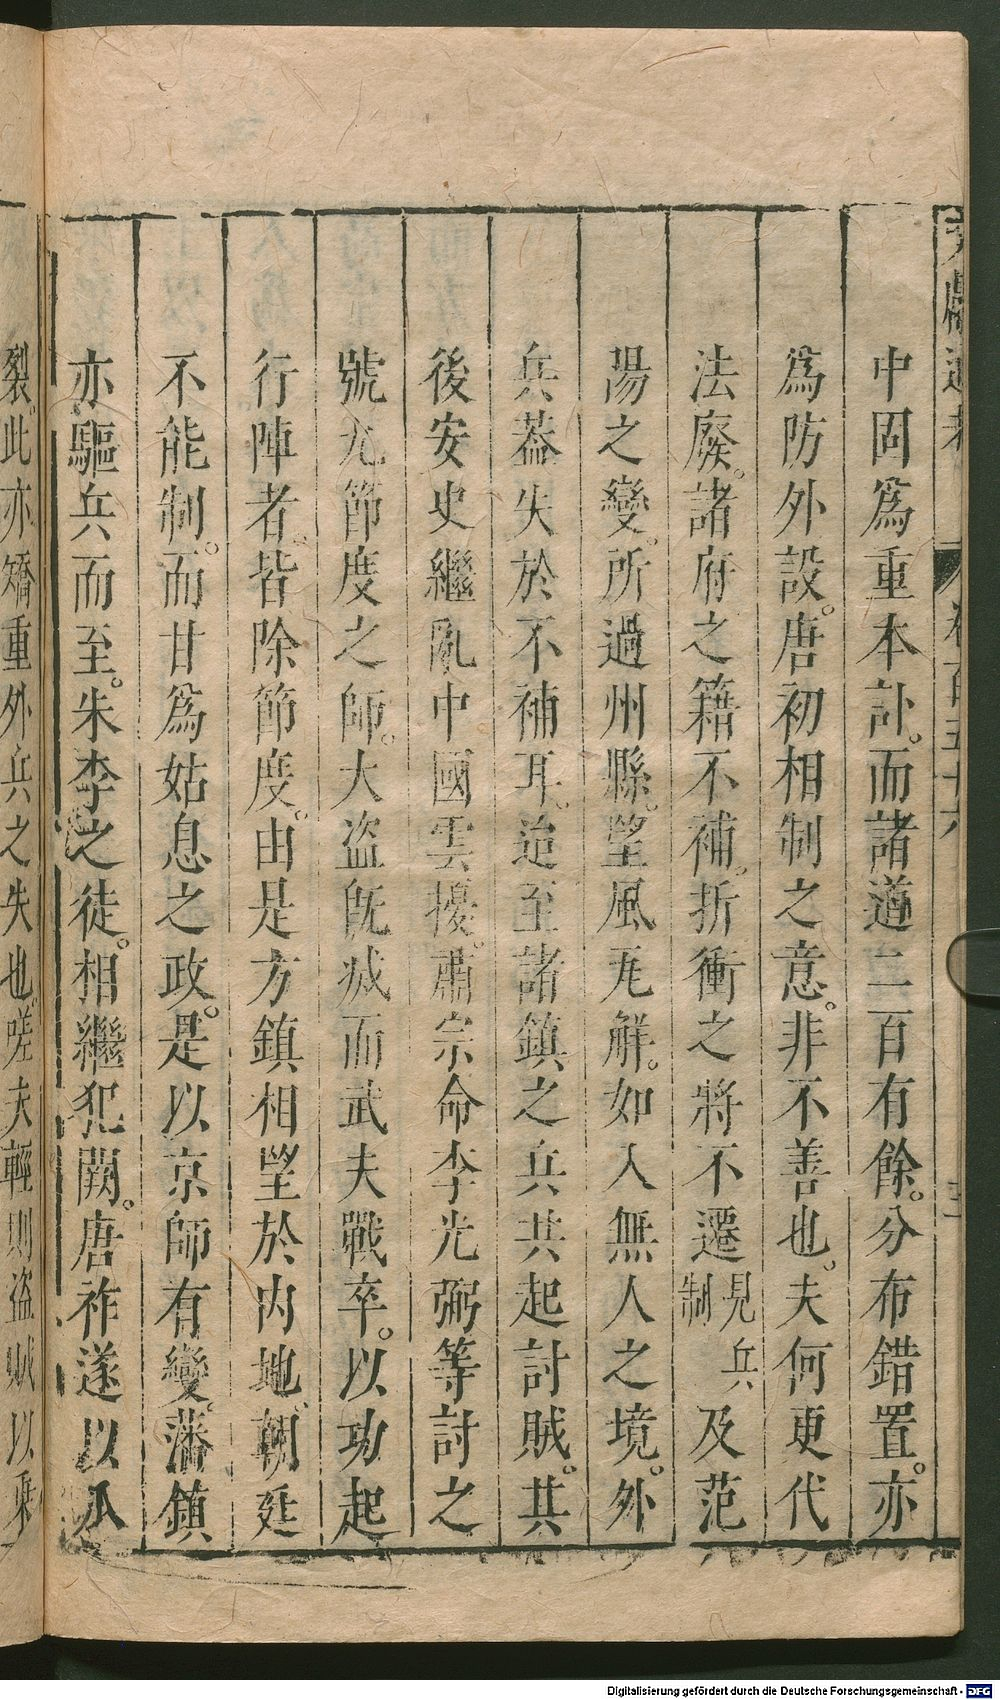 文獻通考 卷百五十六
中固爲重本計。而諸道二百有餘。分布錯置。亦
爲防外設。唐初相制之意。非不善也。夫何更代
法廢。諸府之籍不補。折衝之將不遷見兵制及范
陽之變。所過州縣。望風瓦解。如入無人之境。外
兵葢失於不補耳。迨至諸鎮之兵共起討賊。其
後安史繼亂中國雲擾。肅宗命李光弼等討之
號九節度之師。大盜旣滅而武夫戰卒。以功起
行陣者。皆除節度。由是方鎮相望於内地。朝廷
不能制。而甘爲姑息之政。是以京師有變。藩鎮
亦驅兵而至。朱李之徒。相繼犯闕。唐祚遂以瓜
裂。此亦矯重外兵之失也。嗟夫輕則盜賊以乘
Digitalisierung gefördert durch die Deutsche Forschungsgemeinschaft - DFG